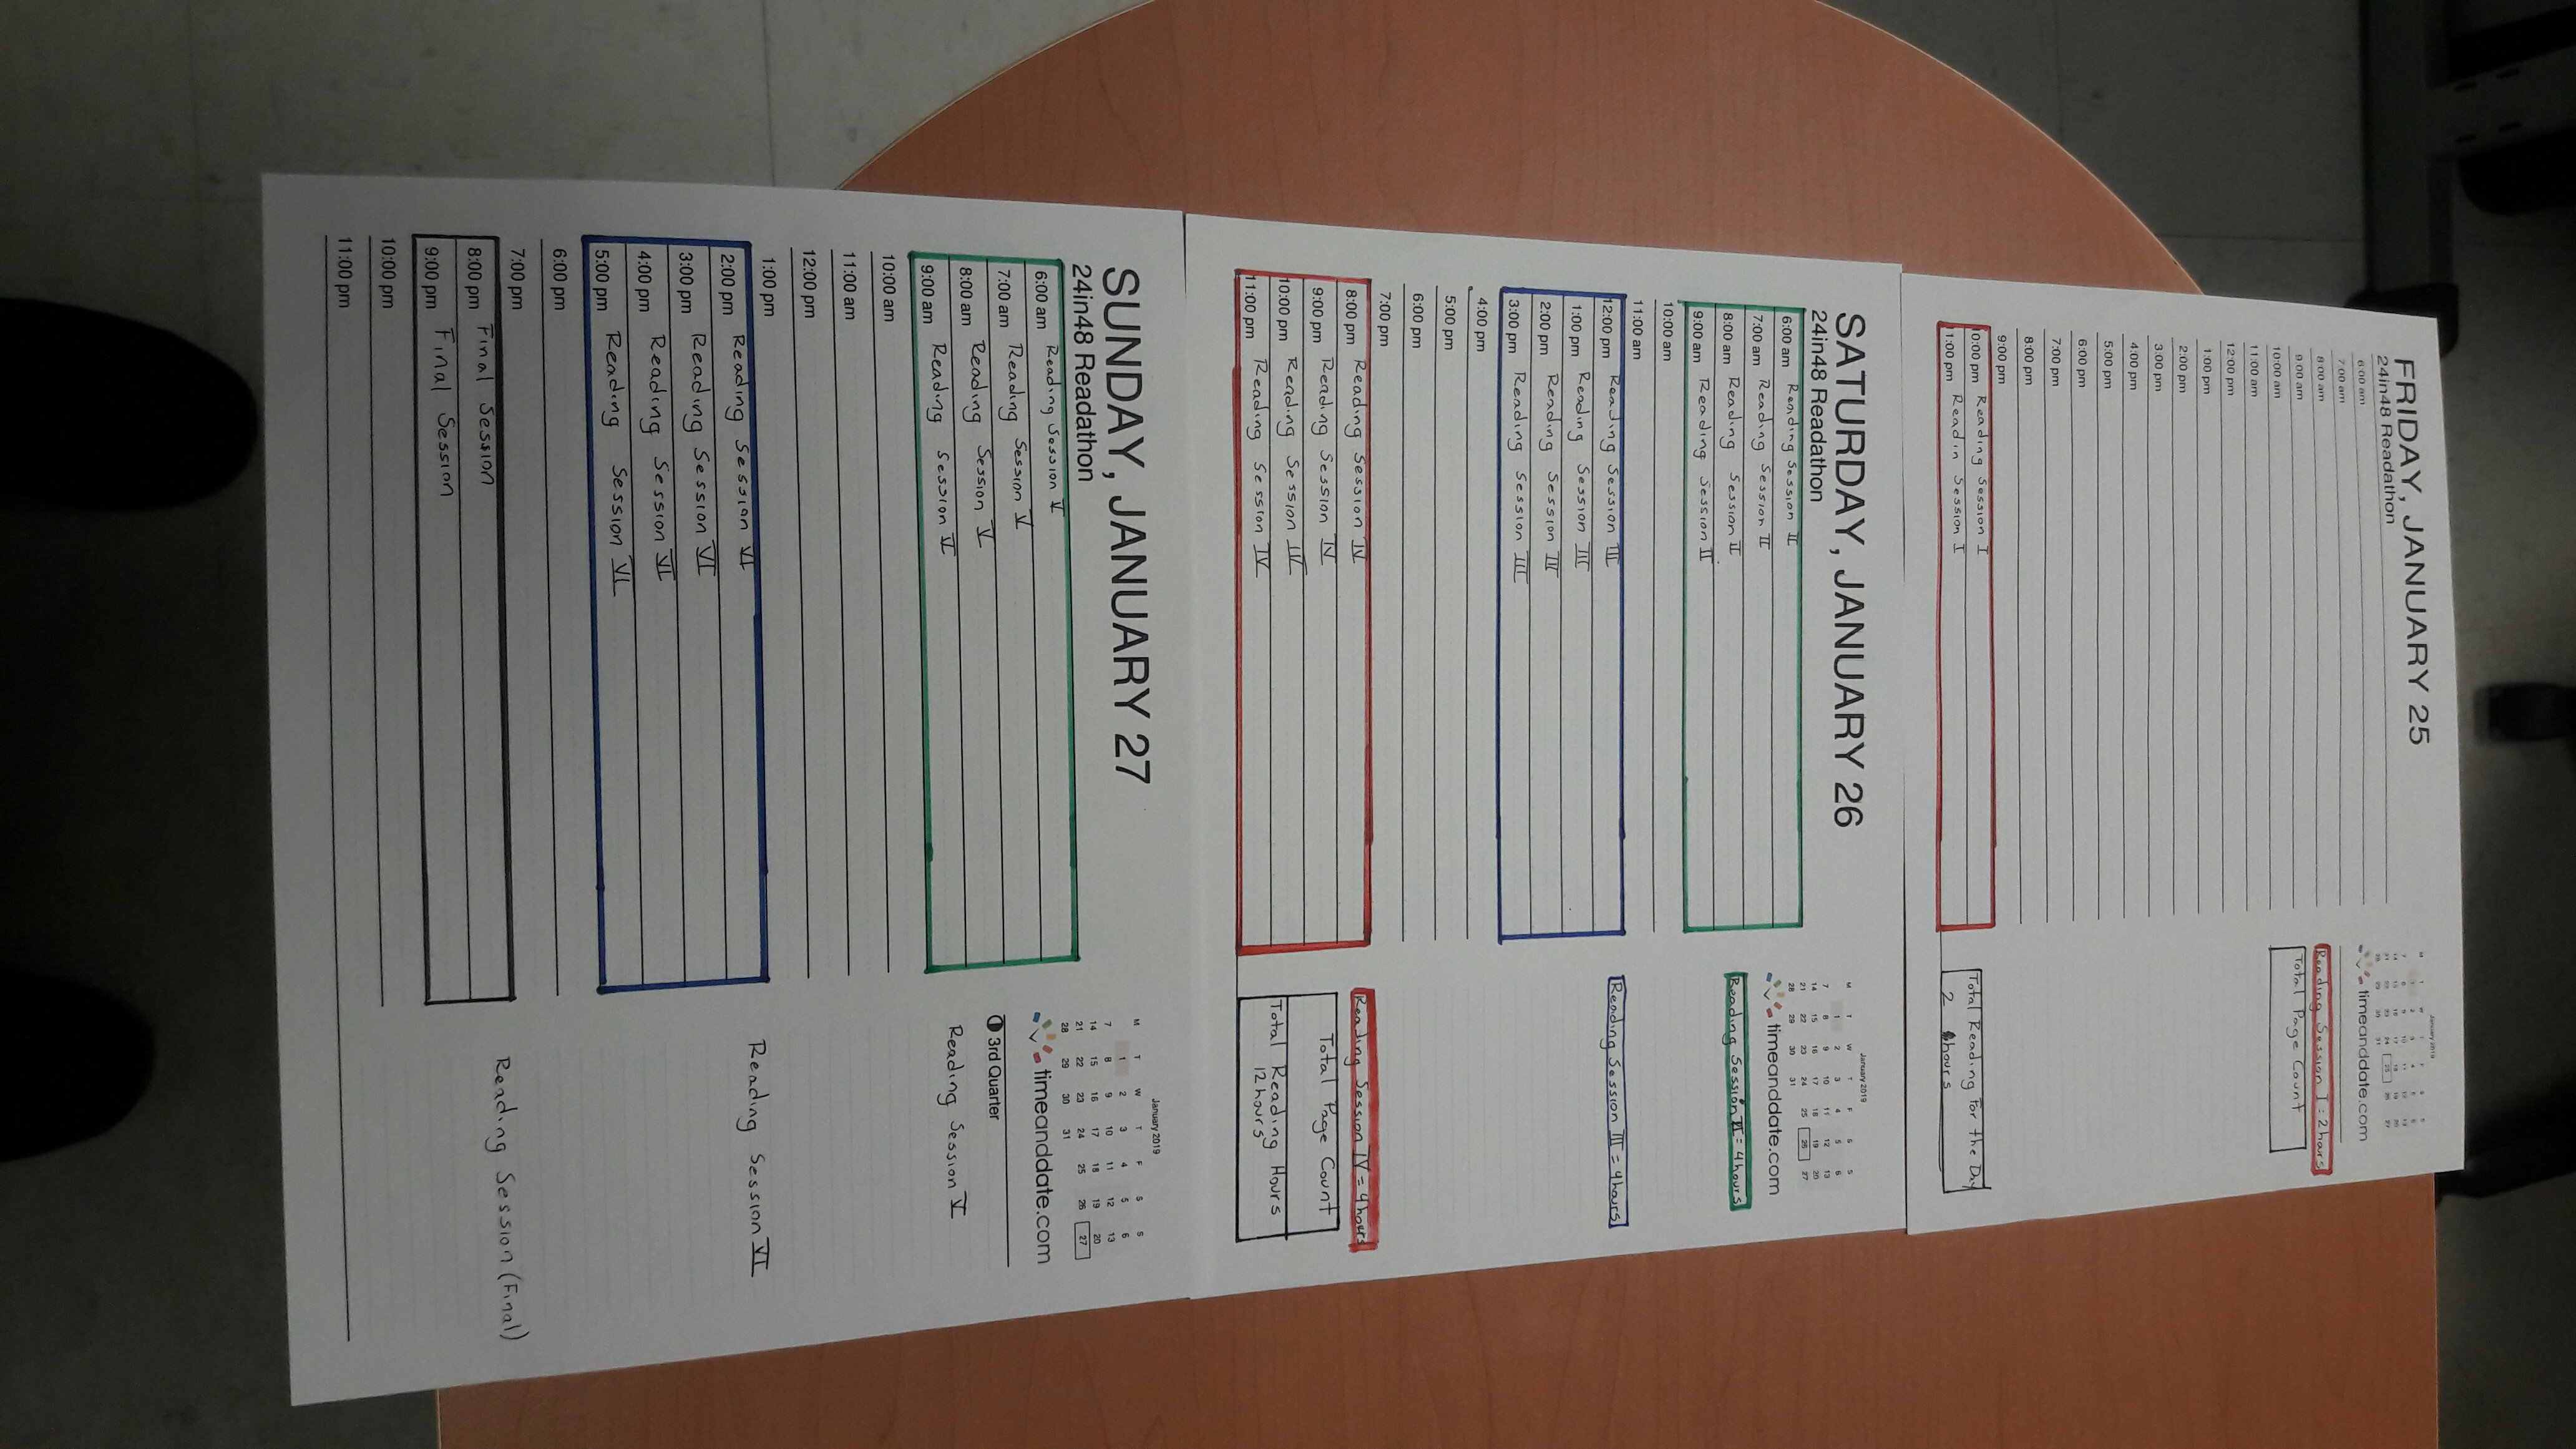 FRIDAY, JANUARY 25
24in48 Readathon
6:00 am
7:00 am
8:00 am
9:00 am
10:00 am
11:00 am
12:00 pm
1:00 pm
2:00 pm
3:00 pm
4:00 pm
5:00 pm
6:00 pm
7:00 pm
8:00 pm
9:00 pm
10:00 pm Reading Session I
11:00 pm Readin Session I
January 2019
timeanddate.com
Reading Session I: 2 hours
Total Page Count
Total Reading For the Day
2 hours
SATURDAY, JANUARY 26
24in48 Readathon
6:00 am Reading Session II
7:00 am Reading Session II
8:00 am Reading Session II
9:00 am Reading Session II
10:00 am
11:00 am
12:00 pm Reading Session III
1:00 pm Reading Session III
2:00 pm Reading Session III
3:00 pm Reading Session III
4:00 pm
5:00 pm
6:00 pm
7:00 pm
8:00 pm Reading Session IV
9:00 pm Reading Session IV
10:00 pm Reading Session IV
11:00 pm Reading Session IV
January 2019
M T W T F S S
1 2 3 4 5 6
7 8 9 10 11 12 13
14 15 16 17 18 19 20
21 22 23 24 25 26 27
28 29 30 31
timeanddate.com
Reading Session II = 4 hours
Reading Session III = 4 hours
Reading Session IV = 4 hours
Total Page Count
Total Reading Hours
12 hours
SUNDAY, JANUARY 27
24in48 Readathon
6:00 am Reading Session V
7:00 am Reading Session V
8:00 am Reading Session V
9:00 am Reading Session V
10:00 am
11:00 am
12:00 pm
1:00 pm
2:00 pm Reading Session VI
3:00 pm Reading Session VI
4:00 pm Reading Session VI
5:00 pm Reading Session VI
6:00 pm
7:00 pm
8:00 pm Final Session
9:00 pm Final Session
10:00 pm
11:00 pm
January 2019
M T W T F S S
1 2 3 4 5 6
7 8 9 10 11 12 13
14 15 16 17 18 19 20
21 22 23 24 25 26 27
28 29 30 31
timeanddate.com
3rd Quarter
Reading Session V
Reading Session VI
Reading Session (Final)